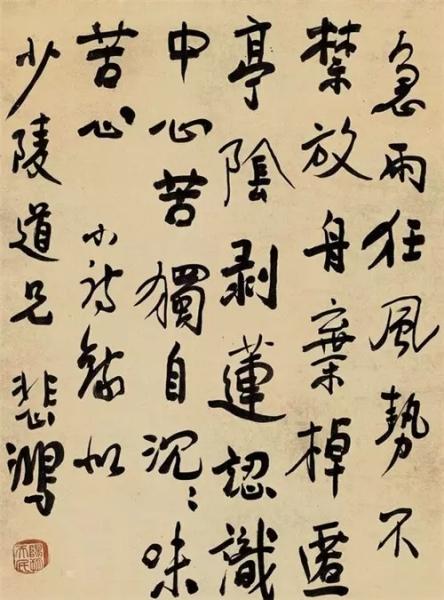 急雨狂風勢不
禁放舟棄棹匿
亭陰剥蓮認識
中心苦獨自沉々味
苦心 小詩錄似
少陵道兄 悲鴻